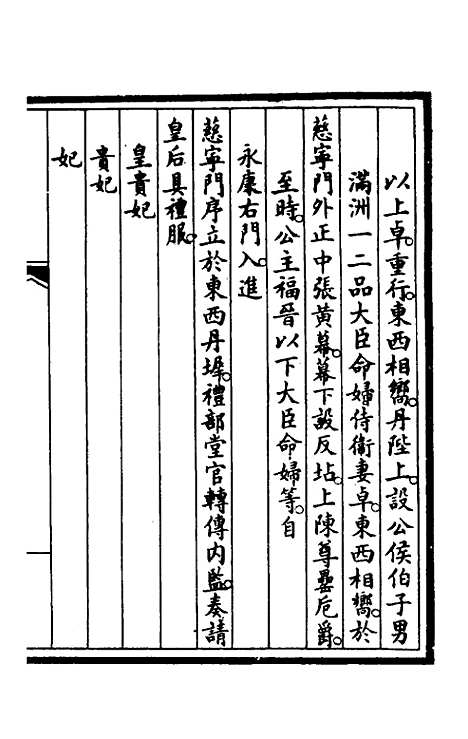 以上卓。重行。東西相嚮。丹陛上。設公侯伯子男
滿洲一二品大臣命婦侍衛妻卓。東西相嚮。於
慈寧門外正中張黃幕。幕下設反坫。上陳尊罍卮爵。
至時。公主福晉以下大臣命婦等。自
永康右門。入進
慈寧門序立於東西丹墀。禮部堂官轉傳內監。奏請
皇后具禮服。
皇貴妃
貴妃
妃